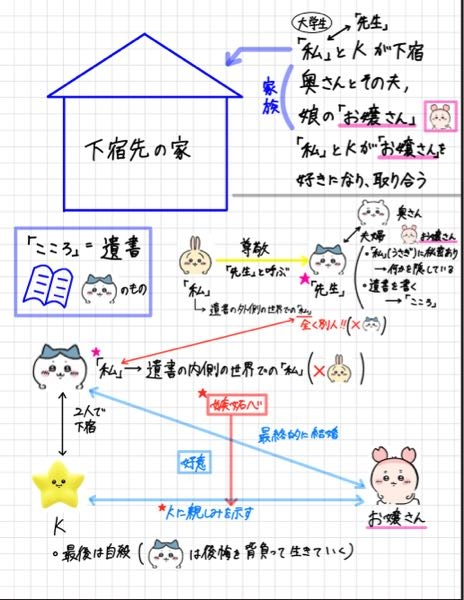 大学生
「先生」
「私」とKが下宿
家族
奥さんとその夫,
娘の「お嬢さん」
「私」とKが「お嬢さん」を
好きになり,取り合う
下宿先の家
「こころ」=遺書
のもの
「私」
尊敬
「先生」と呼ぶ
★
「先生」
夫婦
奥さん
お嬢さん
・「私」(うさぎ)に秘密あり
→何かを隠している
・遺書を書く
→「こころ」
↳遺書の外側の世界での「私」
全く別人!!(×)
★
「私」→遺書の内側の世界での「私」(×)
2人で
下宿
★嫉妬心
最終的に結婚
好意
★Kに親しみを示す
K
お嬢さん
・最後は自殺(は後悔を背負って生きていく)